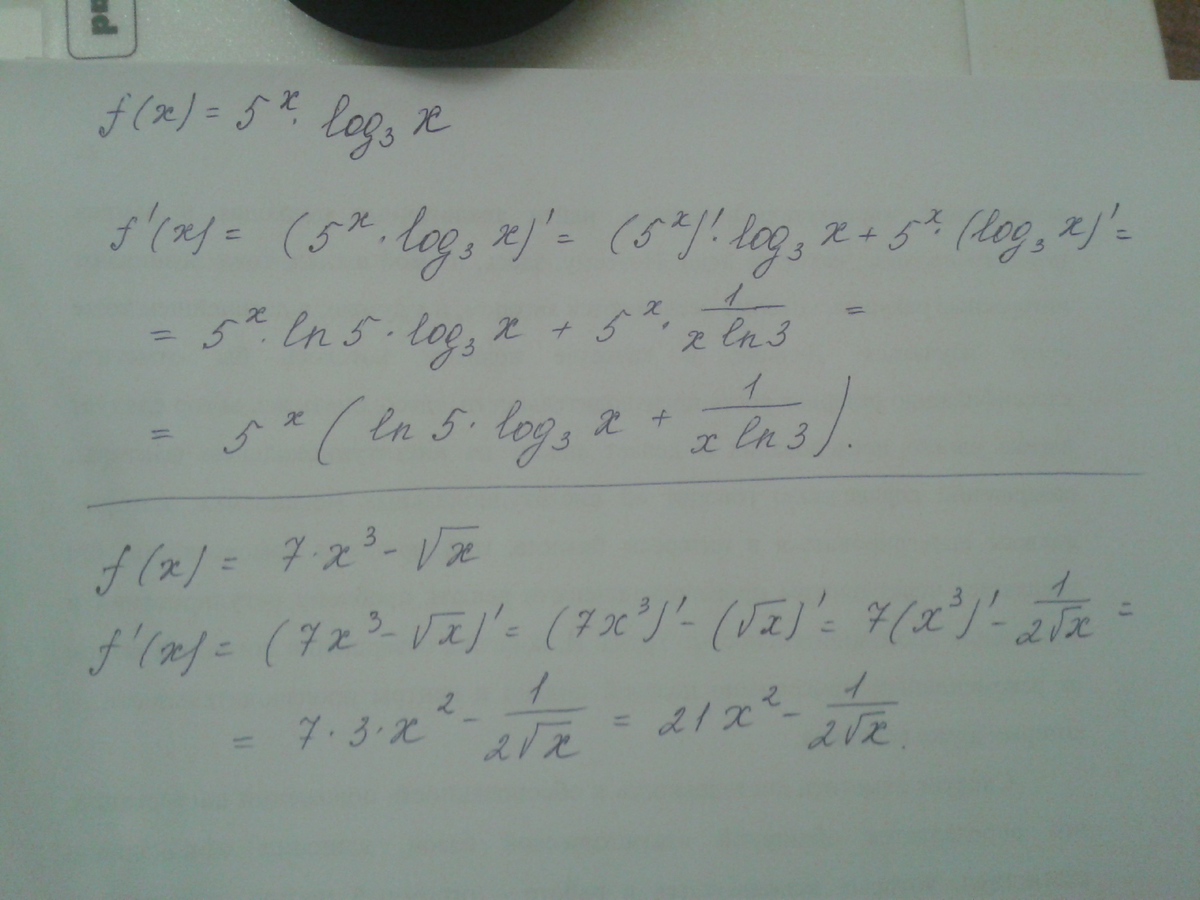 f(x) = 5^x · log₃ x
f'(x) = (5^x · log₃ x)' = (5^x)' · log₃ x + 5^x · (log₃ x)' =
= 5^x · ln 5 · log₃ x + 5^x · 1/(x ln 3) =
= 5^x (ln 5 · log₃ x + 1/(x ln 3)).
f(x) = 7 · x³ - √x
f'(x) = (7x³ - √x)' = (7x³)' - (√x)' = 7(x³)' - 1/(2√x) =
= 7 · 3 · x² - 1/(2√x) = 21x² - 1/(2√x).